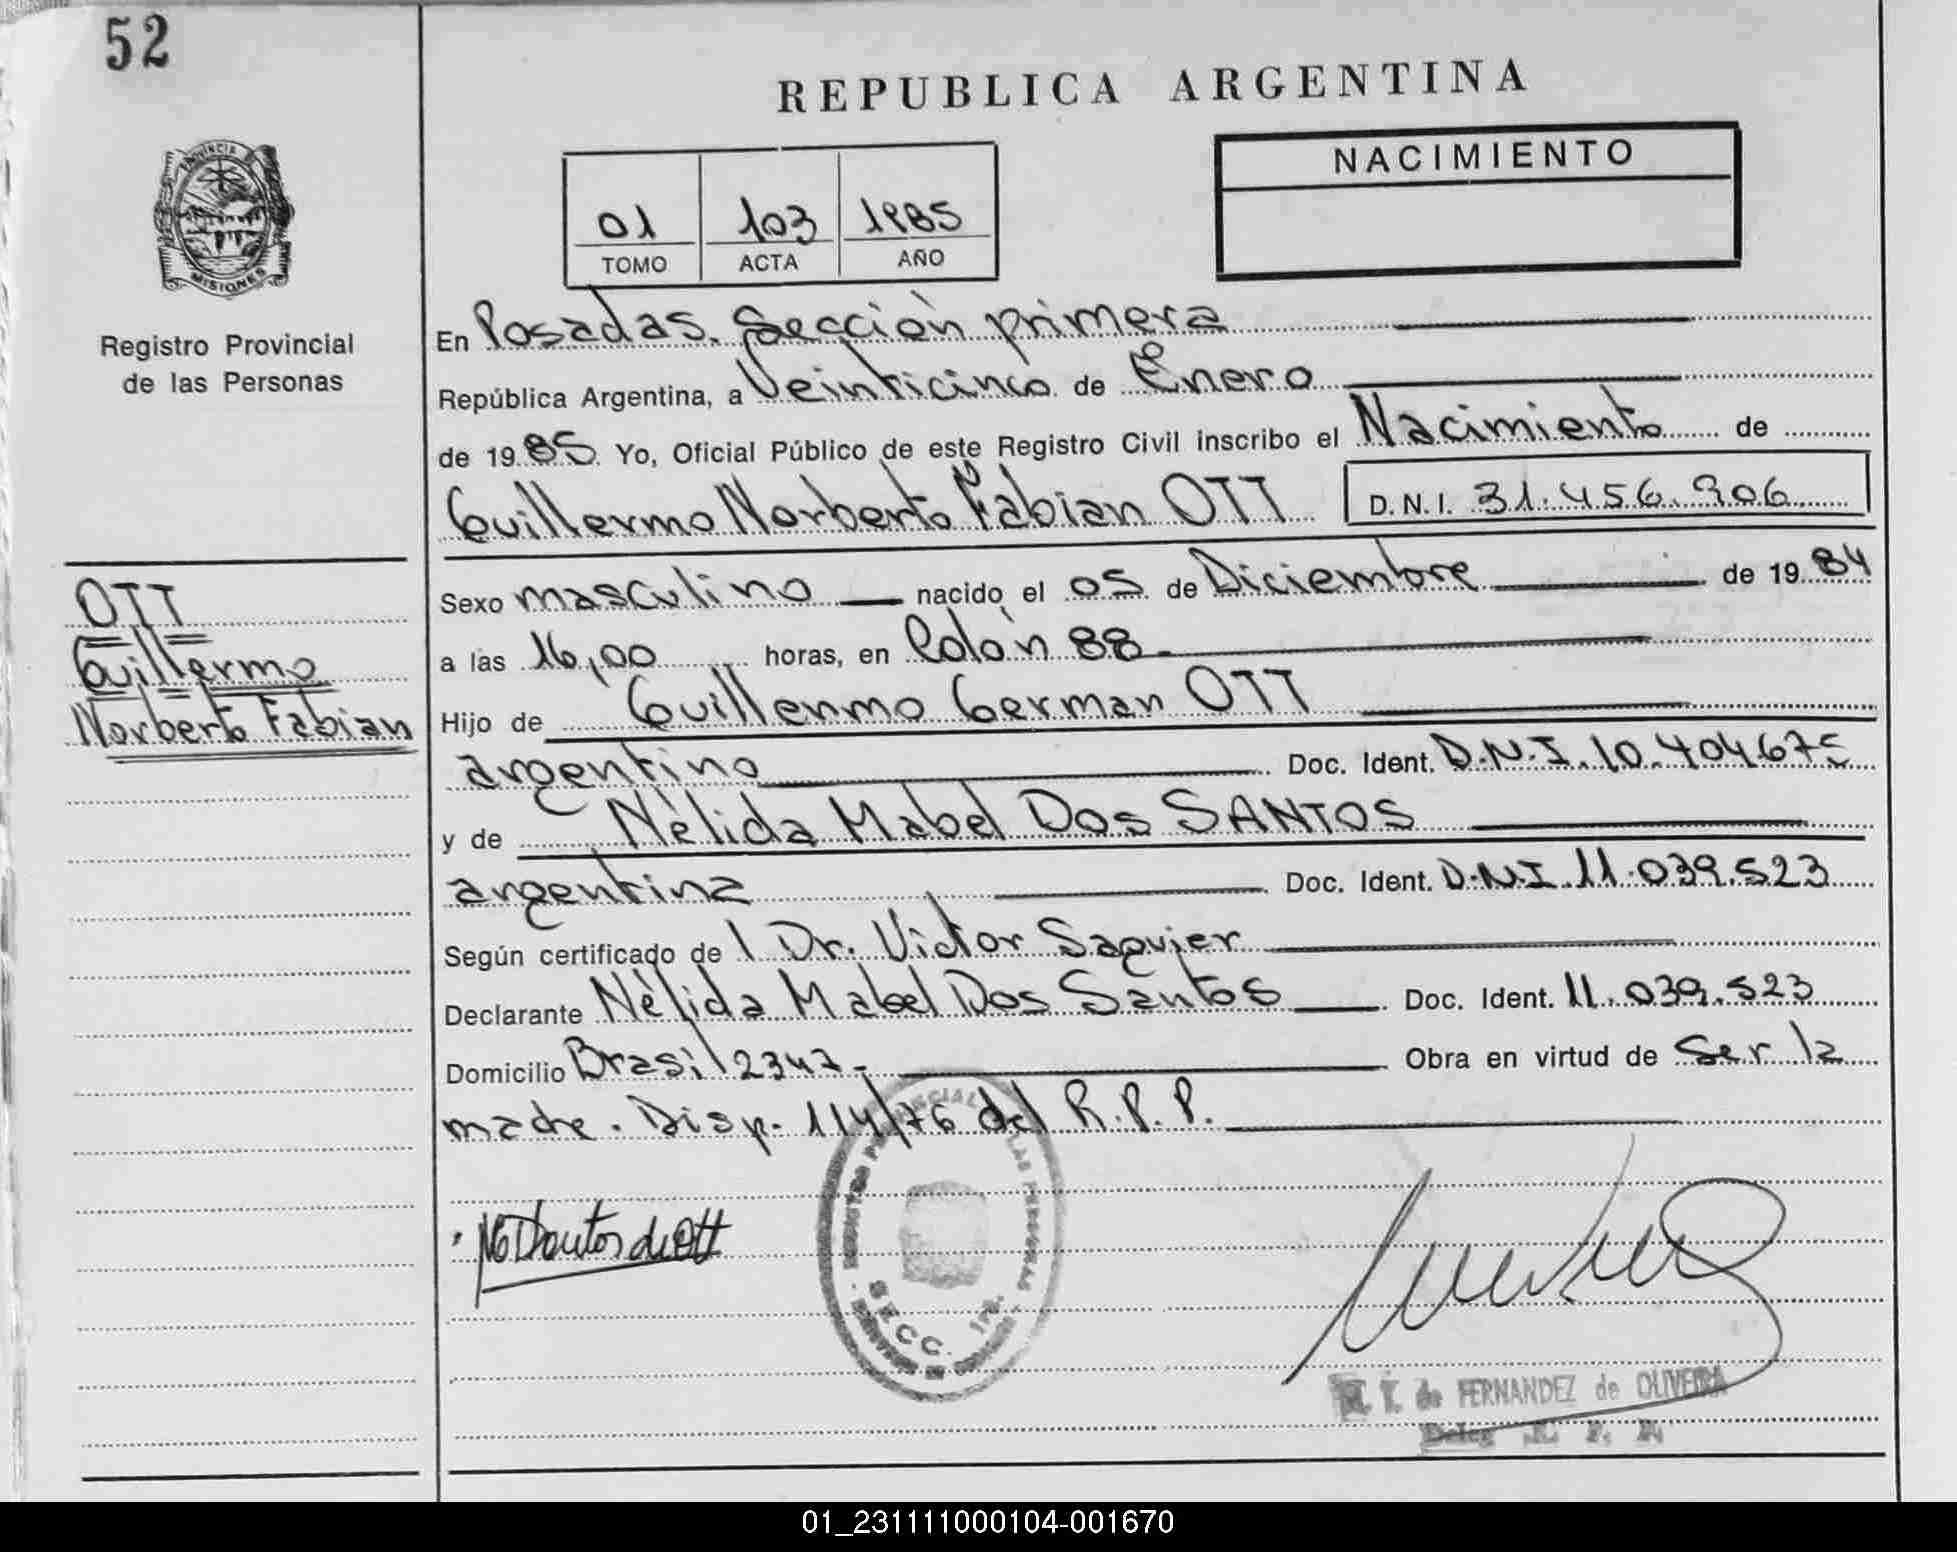 52
REPUBLICA ARGENTINA
PROVINCIA
MISIONES
Registro Provincial
de las Personas
01 103 1985
TOMO ACTA AÑO
NACIMIENTO
En Posadas. Sección primera
República Argentina, a Veinticinco de Enero
de 1985 Yo, Oficial Público de este Registro Civil inscribo el Nacimiento de
Guillermo Norberto Fabian OTT D.N.I. 31.456.906
OTT
Guillermo
Norberto Fabian
Sexo masculino nacido el 05 de Diciembre de 1984
a las 16,00 horas, en Colón 88-
Hijo de Guillermo German OTT
argentino Doc. Ident. D.N.I. 10.404675
y de Nèlida Mabel Dos SANTOS
argentina Doc. Ident. D.N.I 11.039.523
Según certificado de l Dr. Victor Saguier
Declarante Nèlida Mabel Dos Santos Doc. Ident. 11.039.523
Domicilio Brasil 2347- Obra en virtud de Ser la
madre. Disp. 114/76 del R.P.P.
SECC. 1ra.
de FERNANDEZ de OLIVEIRA
Deleg. R. P. P.
01_231111000104-001670